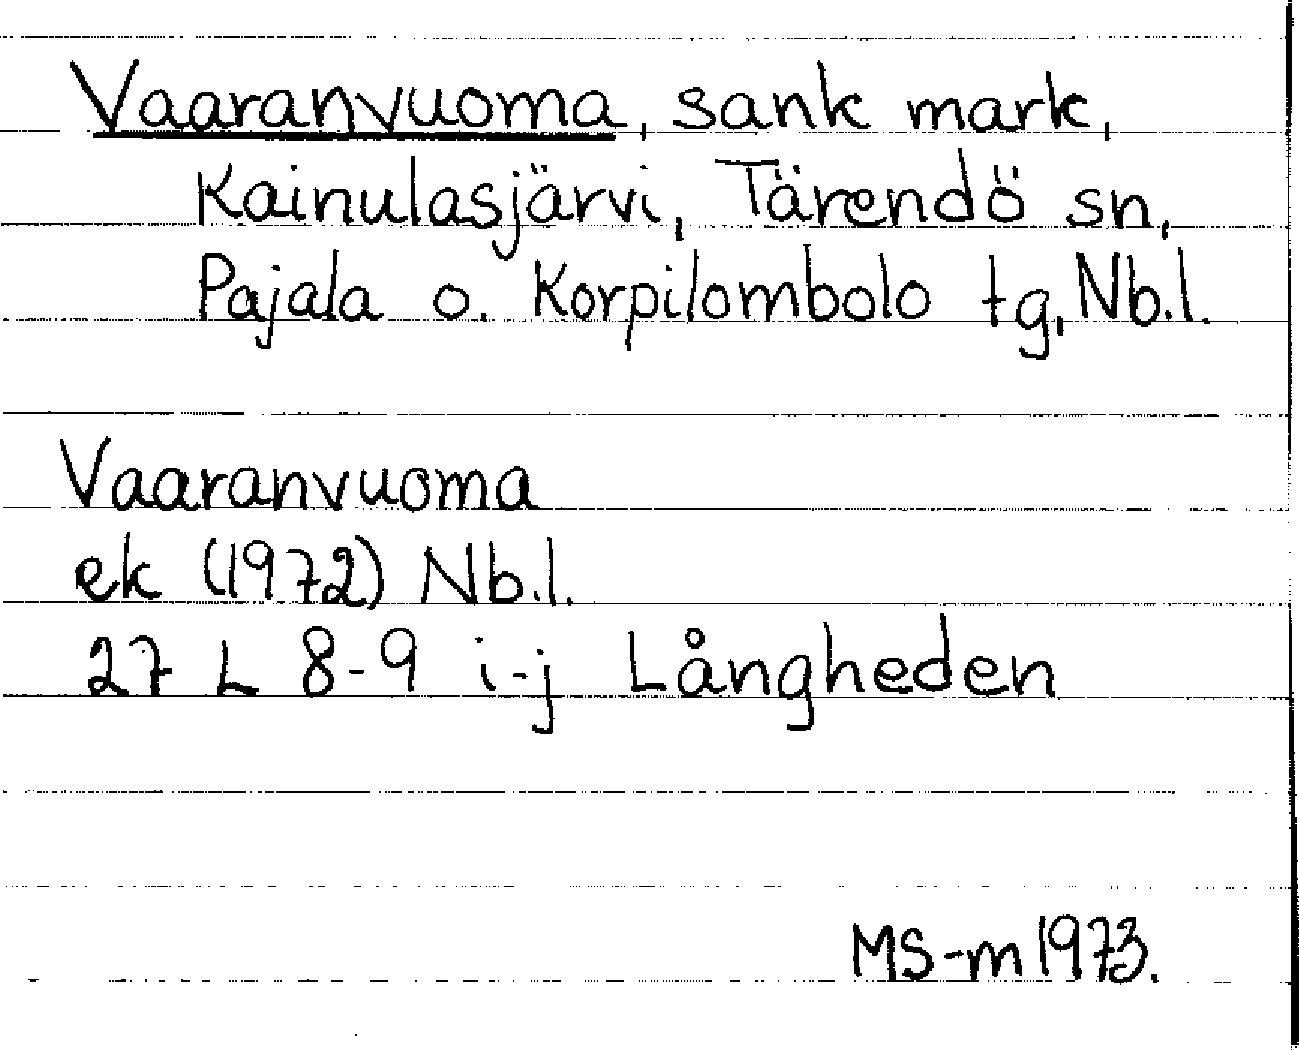 Vaaranvuoma, sank mark,
Kainulasjärvi, Tärendö sn,
Pajala o. Korpilombolo tg, Nb.l.
Vaaranvuoma
ek (1972) Nb.l.
27 L 8-9 i-j Långheden
MS-m 1973.